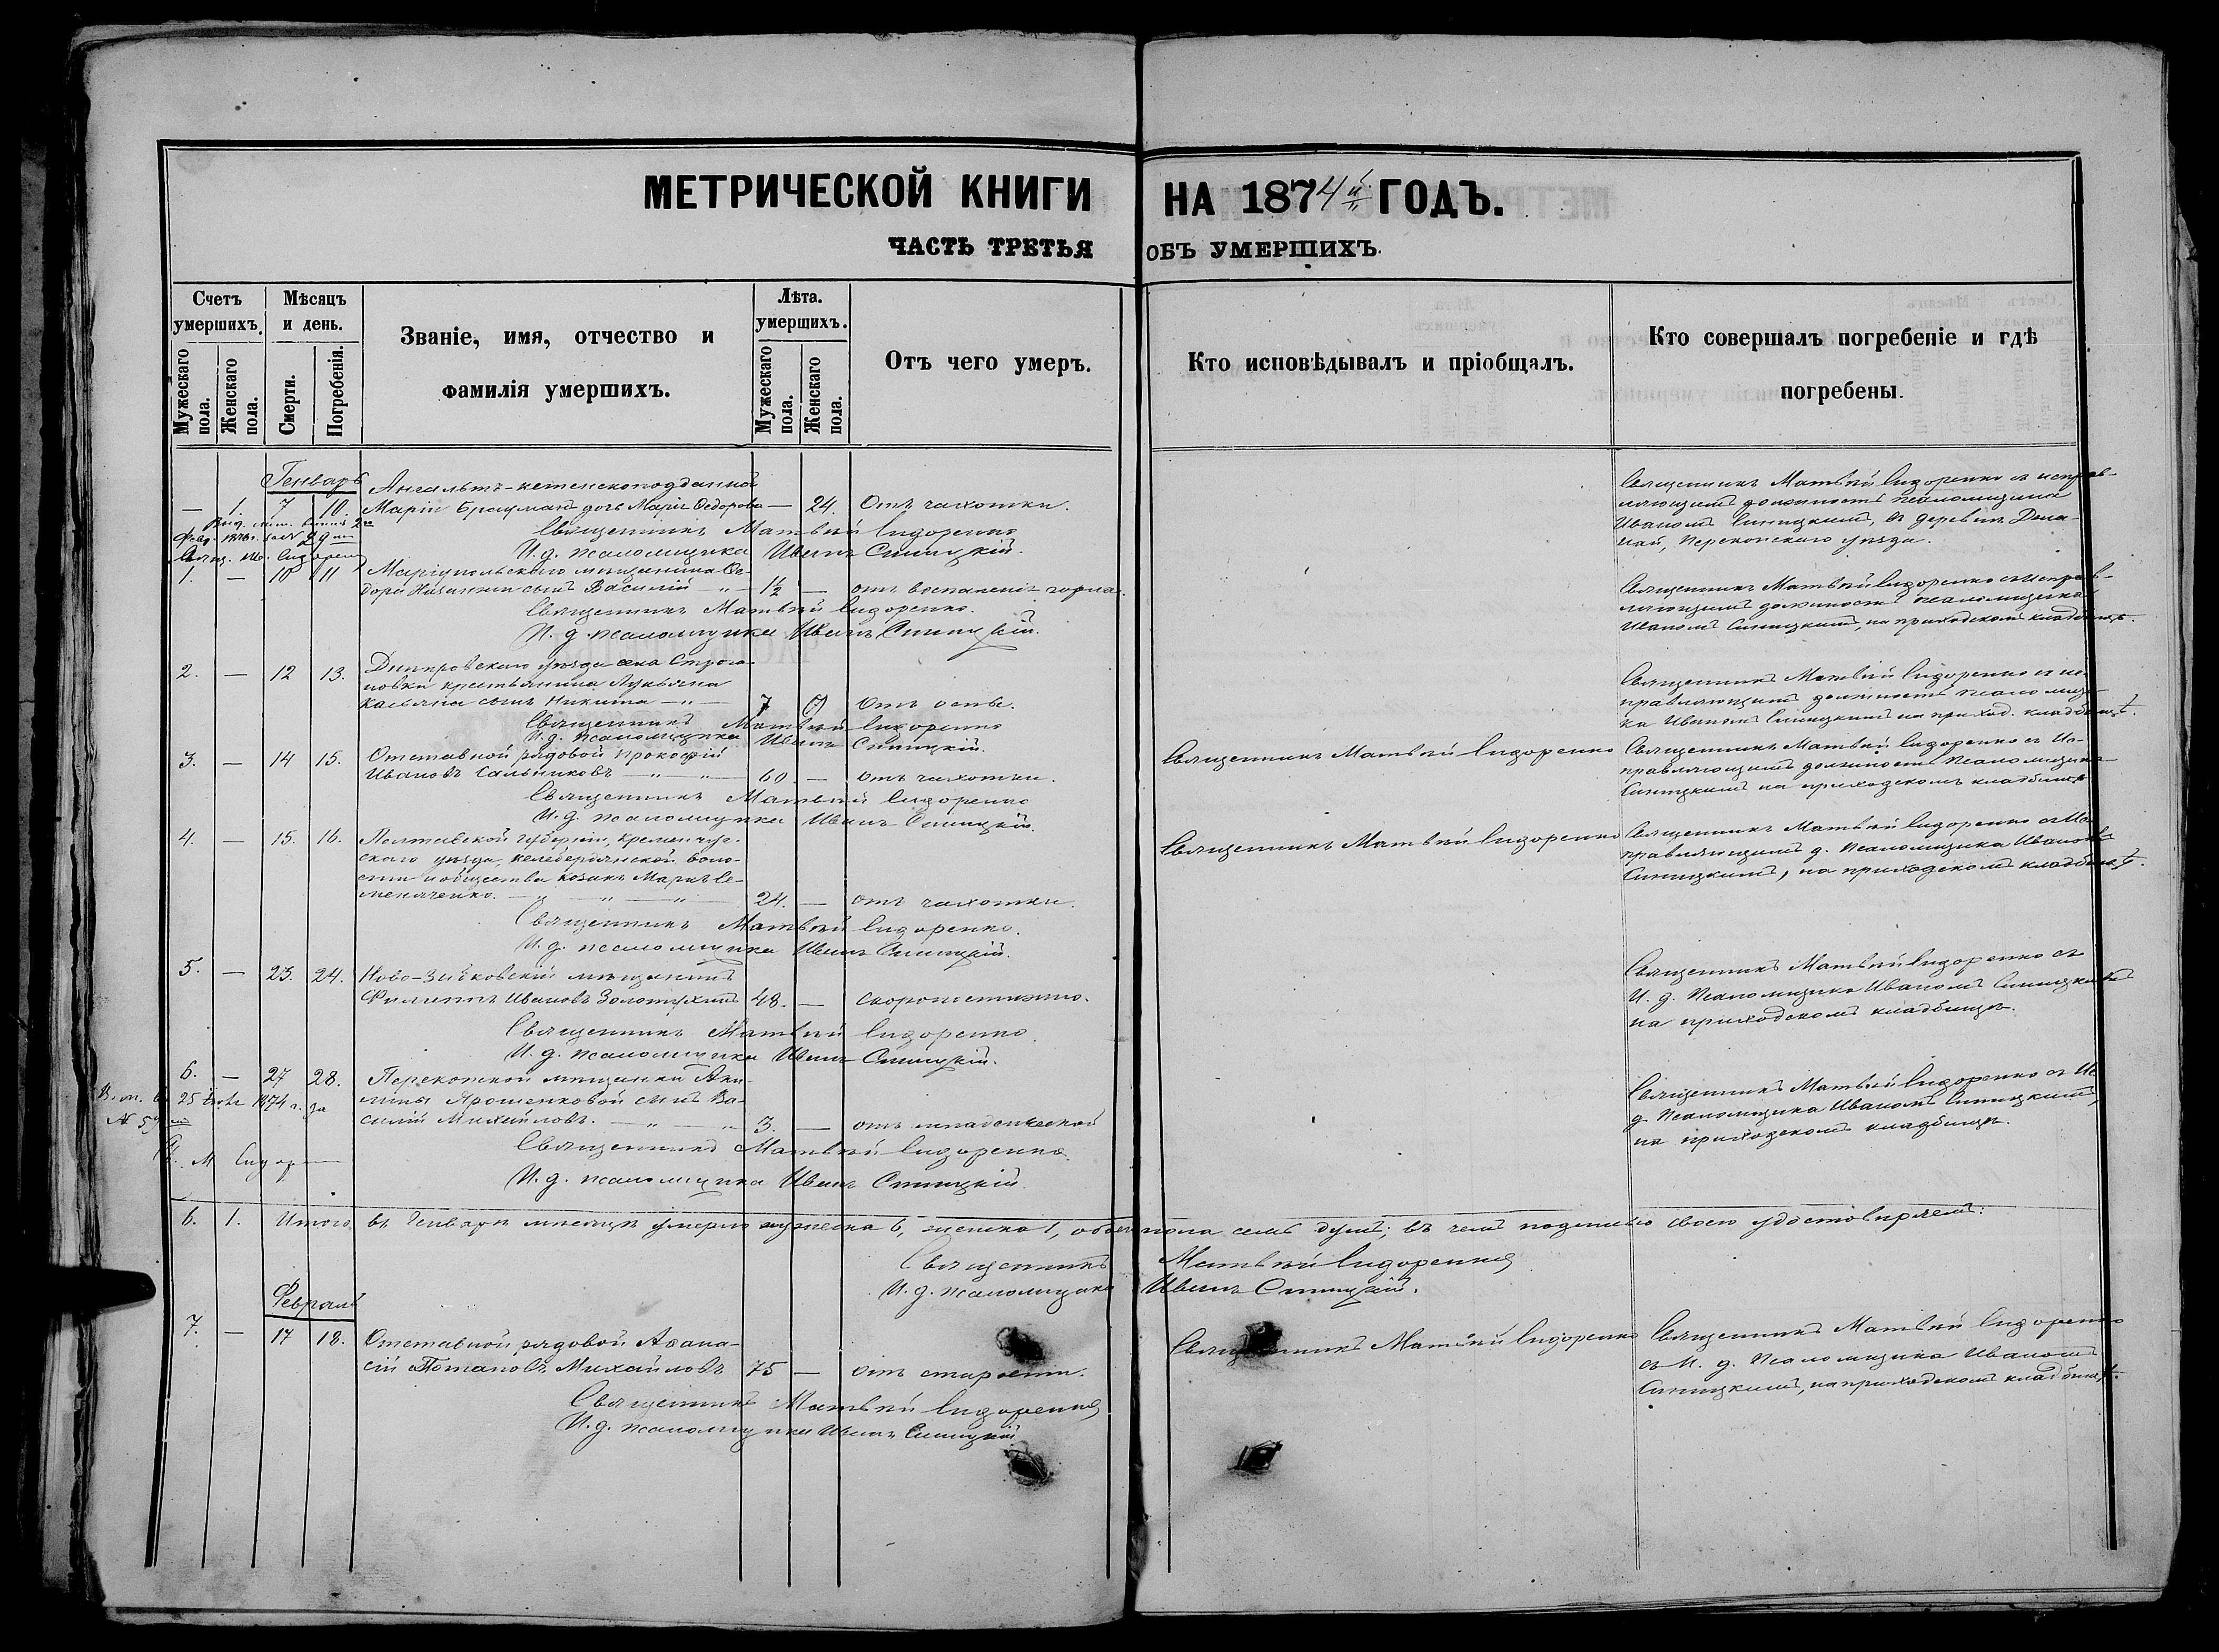 МЕТРИЧЕСКОЙ КНИГИ НА 1874й ГОДЪ.
ЧАСТЬ ТРЕТЬЯ ОБЪ УМЕРШИХЪ.
Счетъ умершихъ.
Мужескаго пола.
Женскаго пола.
Мѣсяцъ и день.
Смерти.
Погребенія.
Званіе, имя, отчество и
фамилія умершихъ.
Лѣта. умерщихъ.
Мужескаго пола.
Женскаго пола.
Отъ чего умеръ.
Кто исповѣдывалъ и пріобщалъ.
Кто совершалъ погребеніе и гдѣ
погребены.
Генварь
— 1. 7 10.
Марія Ѳедорова — 24. Отъ чахотки.
Священникъ Матвѣй Сидоренко
И. д. псаломщика Иванъ Синицкій.
Священникъ Матвѣй Сидоренко съ исправ-
ляющимъ должность псаломщика
Иваномъ Синицкимъ, въ деревнѣ
Перекопскаго уѣзда.
1. — 10 11 Маріупольскаго мѣщанина Ѳе-
дора сынъ Василій — " — 1½ — отъ воспаленія горла.
Священникъ Матвѣй Сидоренко.
И. д. псаломщика Иванъ Синицкій.
Священникъ Матвѣй Сидоренко съ исправ-
ляющимъ должность псаломщика
Иваномъ Синицкимъ, на приходскомъ кладбищѣ.
2. — 12 13. Днѣпровскаго уѣзда села Строга-
новки крестьянина Лукьяна
Касьяна сынъ Никита — " — 7 Отъ оспы.
Священникъ Матвѣй Сидоренко
И. д. псаломщика Иванъ Синицкій.
Священникъ Матвѣй Сидоренко съ ис-
правляющимъ должность псаломщи-
ка Иваномъ Синицкимъ на приход. кладбищѣ.
3. — 14 15. Отставной рядовой Прокофій
Ивановъ Сальниковъ — " — " — 60 — отъ чахотки.
Священникъ Матвѣй Сидоренко
И. д. псаломщика Иванъ Синицкій.
Священникъ Матвѣй Сидоренко
Священникъ Матвѣй Сидоренко съ Ис-
правляющимъ должность Псаломщика
Синицкимъ на приходскомъ кладбищѣ
4. — 15. 16. Полтавской губерніи, Кременчуг-
скаго уѣзда, келебердянской воло-
сти и общества козакъ Маркъ Се-
меняченко. — " — " — " — 24. — отъ чахотки.
Священникъ Матвѣй Сидоренко.
И. д. псаломщика Иванъ Синицкій.
Священникъ Матвѣй Сидоренко
Священникъ Матвѣй Сидоренко съ Ис-
правляющимъ д. Псаломщика Иваномъ
Синицкимъ, на приходскомъ кладбищѣ.
5. — 23. 24. Ново-Зыбковскій мѣщанинъ
Филиппъ Ивановъ Золотухинъ 48. — скоропостижно.
Священникъ Матвѣй Сидоренко.
И. д. псаломщика Иванъ Синицкій.
Священникъ Матвѣй Сидоренко съ
И. д. Псаломщика Иваномъ Синицкимъ
на приходскомъ кладбищѣ.
6. — 27 28. Перекопской мѣщанки Аку-
лины Ярошенковой сынъ Ва-
силій Михайловъ. — " — " 3. — отъ младенческой
Священникъ Матвѣй Сидоренко.
И. д. псаломщика Иванъ Синицкій.
Священникъ Матвѣй Сидоренко съ И.
д. Псаломщика Иваномъ Синицкимъ,
на приходскомъ кладбищѣ.
6. 1. Итого въ Генварѣ мѣсяцѣ умерло мужеска 6, женска 1, обоего пола семь душъ; въ чемъ подписью своею удостовѣряемъ:
Священникъ Матвѣй Сидоренко
И. д. псаломщика Иванъ Синицкій.
Февраль
7. — 17 18. Отставной рядовой Аѳана-
сій Потаповъ Михайловъ 75 — отъ старости.
Священникъ Матвѣй Сидоренко
И. д. псаломщика Иванъ Синицкій
Священникъ Матвѣй Сидоренко
Священникъ Матвѣй Сидоренко
съ И. д. Псаломщика Иваномъ
Синицкимъ, на приходскомъ кладбищѣ.